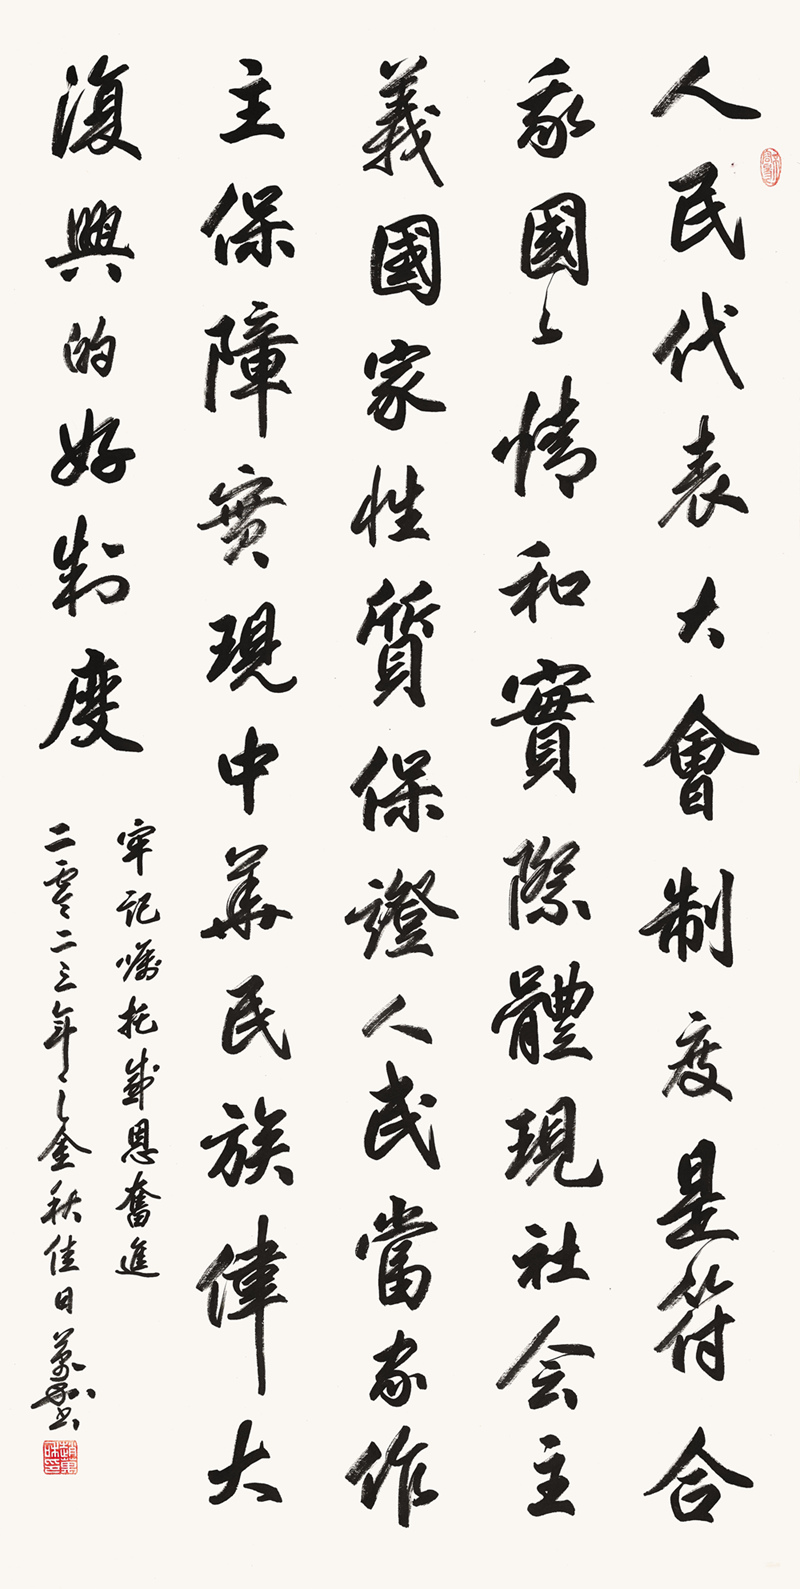 人民代表大會制度是符合
我國國情和實際體現社会主
義國家性質保證人民當家作
主保障實現中華民族偉大
復興的好制度
牢記嘱托感恩奮進
二零二三年之金秋佳日